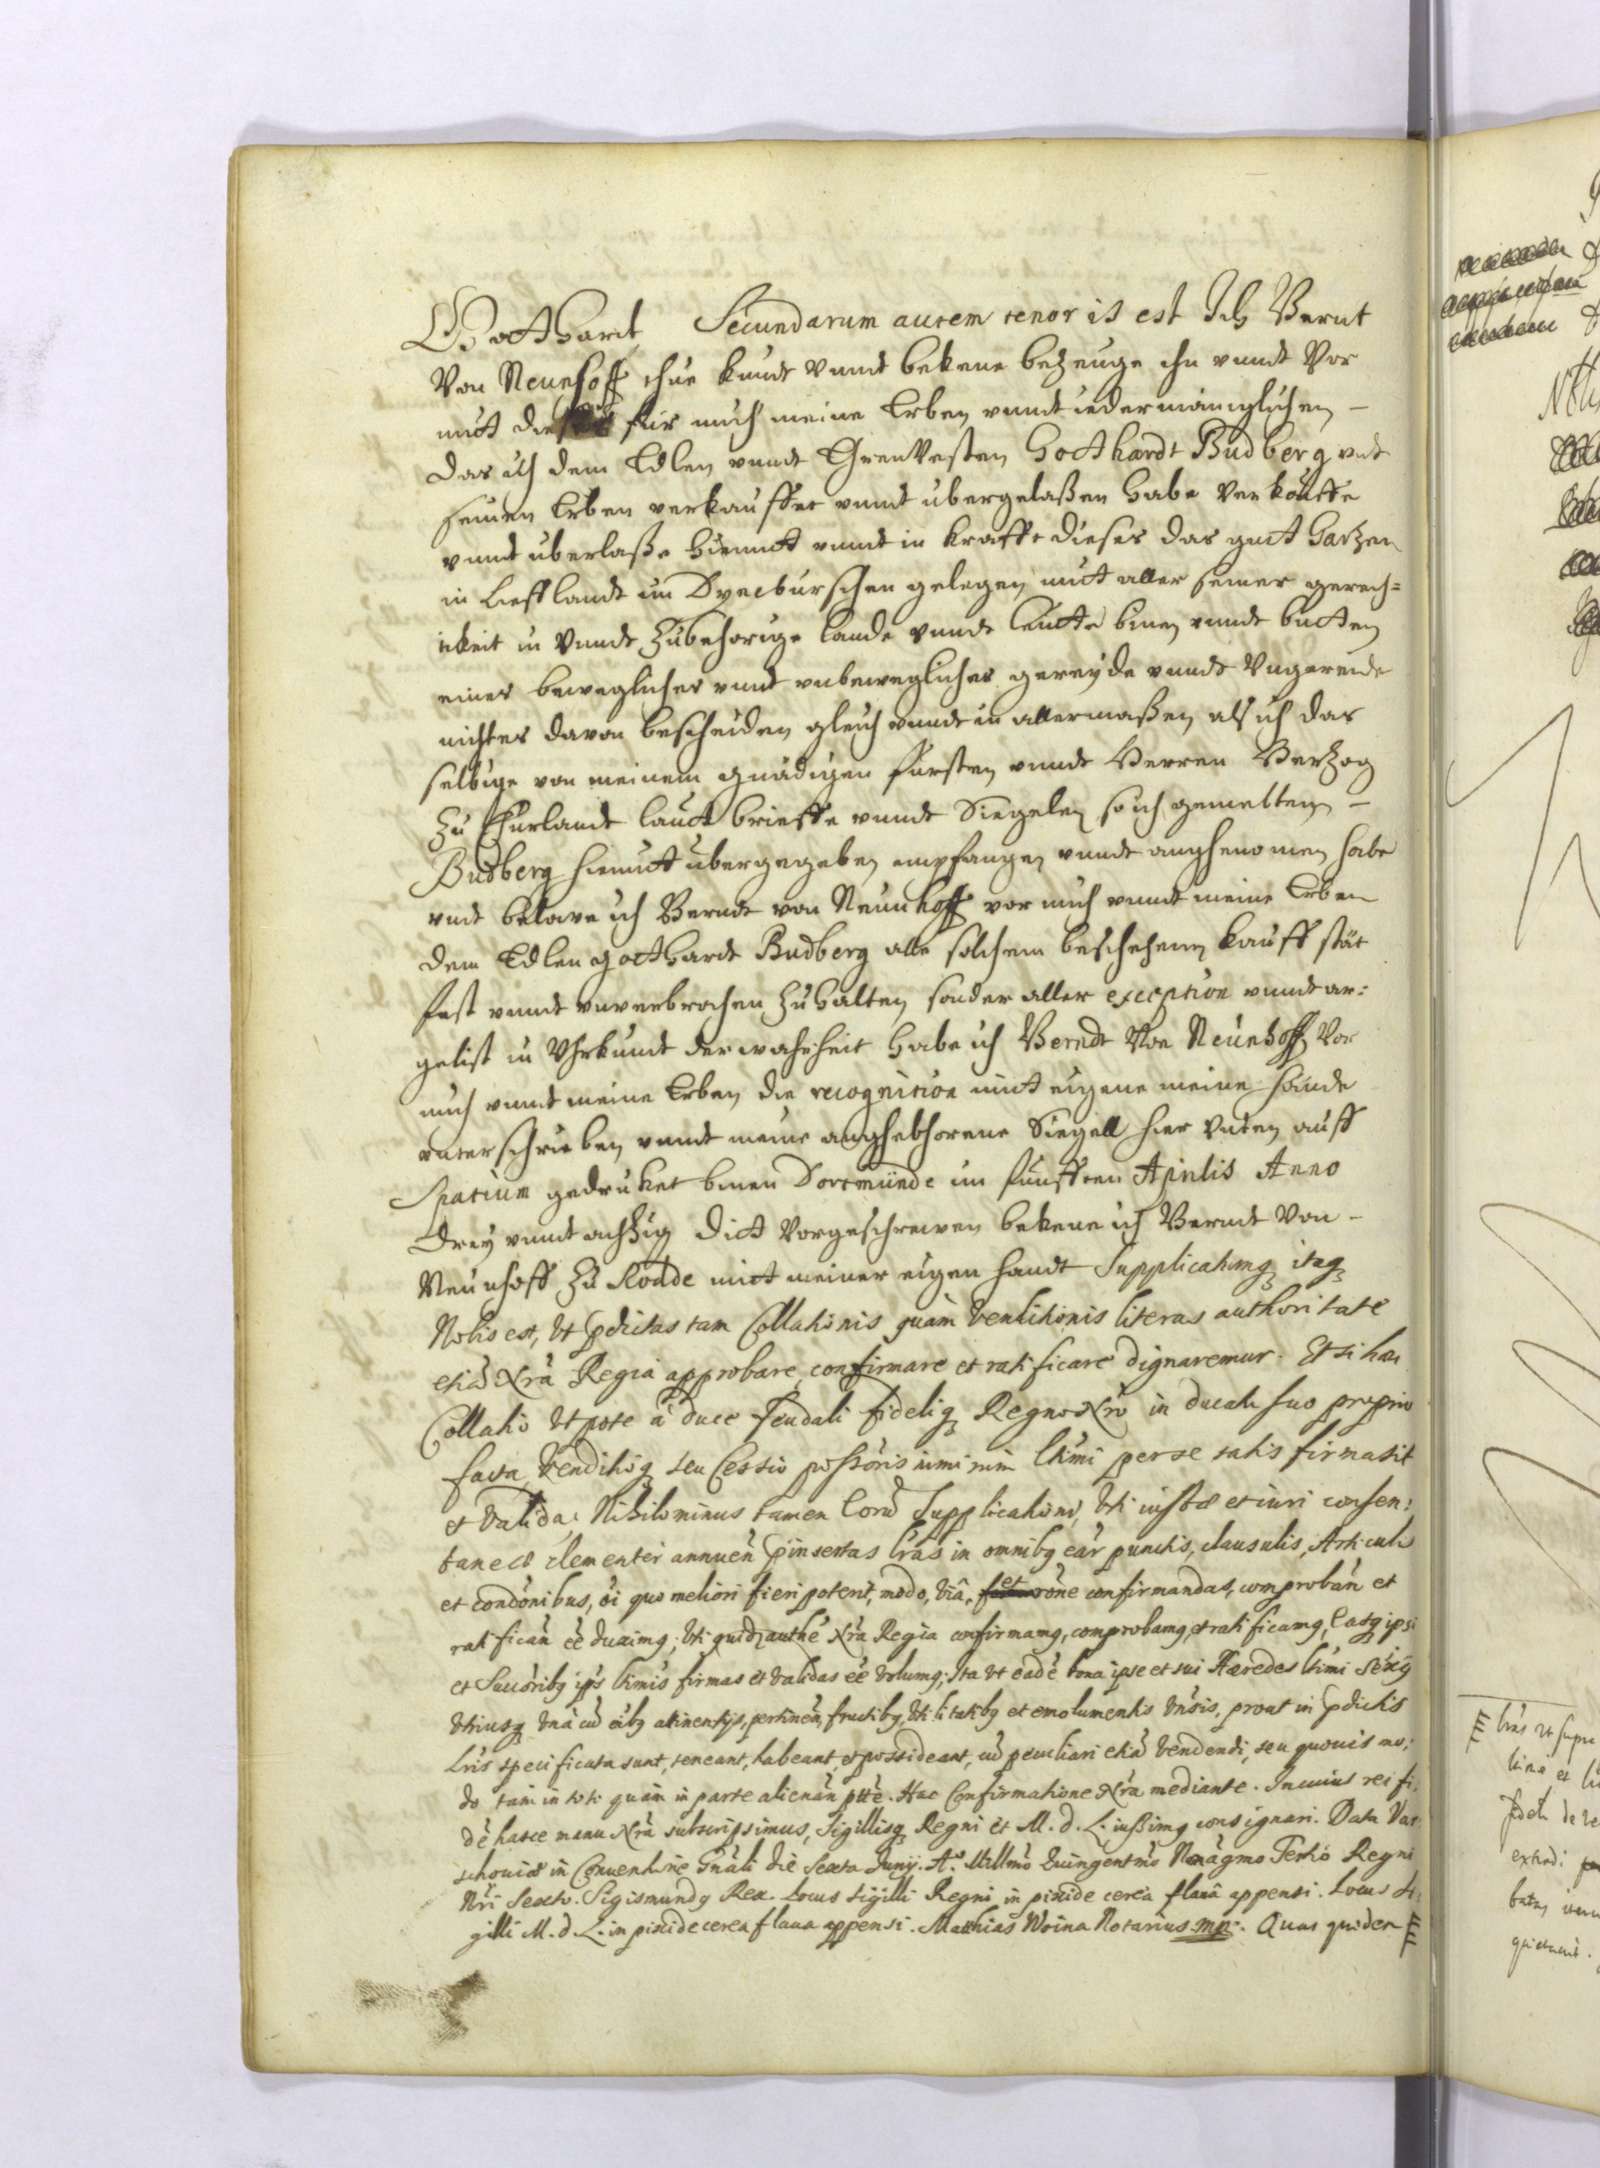 Gotthardt Secundarum autem tenor is est Ich Bernt
Von Neunhoff thue kundt vnndt bekene betzeuge ihn vnndt Vor
mitt dießes für mich meine Erben vnndt iedermänniglichen –
das ich dem Edlen vnndt Ehrenvesten Gotthardt Budberg vndt
seinen Erben verkauffet vnndt ubergelaßen habe Verkauffe
vnndt uberlaße hiemitt vnndt in krafft dieses das gutt Garzen
in Liefflandt im Dyneburschen gelegen mitt aller seiner gerech=
tikeit in Vnndt Zubehorige lande vnndt leutte binen vnndt butten
eines beweglicher vnndt vnbeweglicher gereyde vnndt Vngereide
nichtes davon bescheiden gleich vnndt in allermaßen als ich das
selbige von meinem gnädigen fürsten vnndt Herren Hertzog
Zu Churlandt lautt brieffe vnndt Siegelen so ich gemelten –
Budberg hiemitt ubergegeben empfangen vnndt anghenomen habe
vndt belave ich Berndt von Neunhoff vor mich vnndt meine Erben
dem Edlen Gotthardt Budberg alle solchem beschehenen kauff stät
fast vnndt vnverbrochen Zuhalten sonder aller exception vnndt ar:
gelist in Vhrkundt der wahrheit habe ich Berndt Von Neunhoff Vor
mich vnndt meine Erben die recognition mitt eigene meine hände
vnterschrieben vnndt meine anghebhorene Siegell hier Vnten auff
Spatium gedruket binen Dortmünde im funfften Aprilis Anno
Drey vnndt achtzig Ditt Vorgeschreven bekene ich Berndt Von –
Neunhoff Zu Rodde mitt meiner eigen handt Supplicatumq itaq
Nobis est, Vt pdictas tam Collationis quàm Venditionis literas authoritate
etiã Nrã Regia approbare, confirmare et ratificare dignaremur. Et si hæc
Collatio Vtpote à duce feudali fideliq Regno Nrõ in ducatu suo proprio
facta, Venditioq seu Cessio possõris nimirum ltimi per se satis firma sit
et Valida: Nihilominus tamen Corũ Supplicationi, Vti iustæ et iuri consen:
taneæ clementer annueñ pinsertas lrãs in omnibq eãr punctis, clausulis, Articulis
et condõnibus, õi quo meliori fieri poterit, modo, viâ, et rõne confirmandas, comprobañ et
ratificañ eẽ duximq; Vti quidẽ authẽ Nrã Regia confirmamq, comprobamq, et ratificamq, Easq ipsi
et Succõribq ips ltimis firmas et validas eẽ Volumq; Ita Vt eadẽ bona ipse et sui Hæredes ltimi Sexq
Vtriusq Vnà cũ õibq attinentijs, pertineñ, fructibq, Vtilitatibq et emolumentis Vnsis, prout in pdictis
Lris specificata sunt, teneant, habeant, et possideant, cũ peculiari etiã Vendendi, seu quouis mo:
do tàm in toto quàm in parte alienañ ptte. Hac Confirmatione Nrã mediante. In cuius rei fi:
dẽ hasce manu Nrã subscripsimus, Sigillisq Regni et M. d. L. iussimq consignari. Data Var:
schouiæ in Conuentione Gnãli die Sexta Junij. Aº. Millmõ Quingentmõ Nonãgmo Tertio Regni
Nri Sexto. Sigismundq Rex. Locus Sigilli Regni in pixide cereâ flauâ appensi. Locus Si:
gilli M. d. L. in pixide cerea flaua appensi. Matthias Woina Notarius mp. Quas quidem